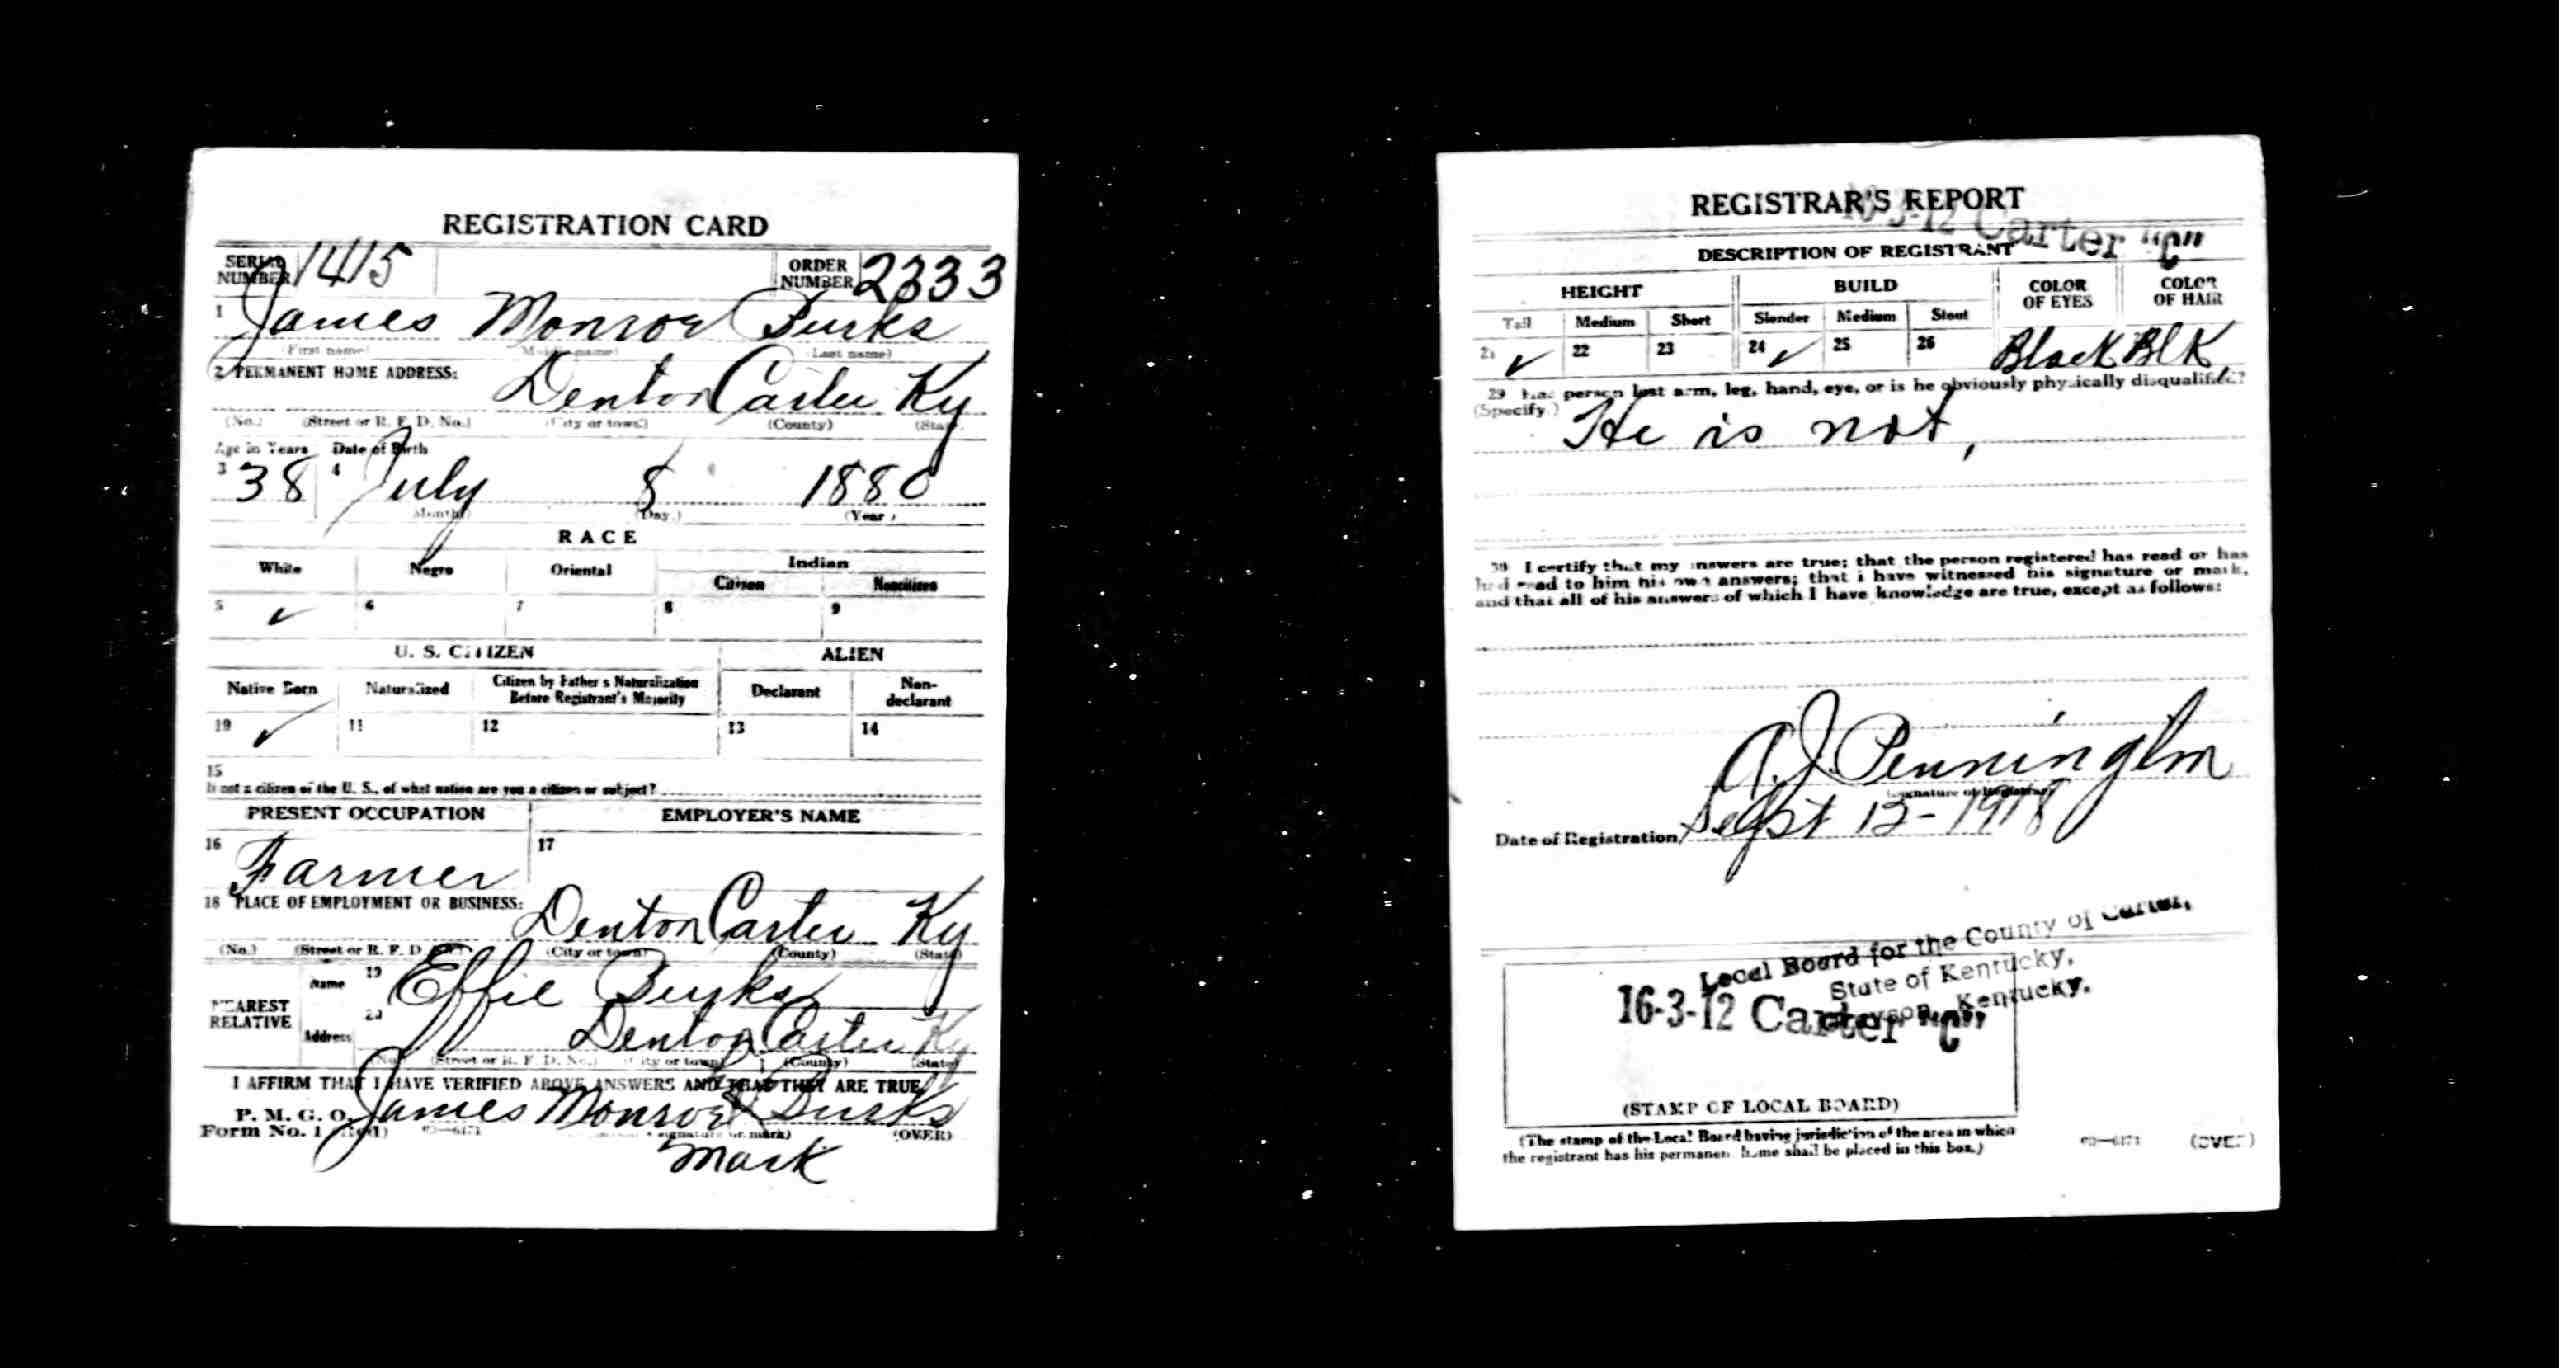 REGISTRATION CARD
SERIAL NUMBER 1415 ORDER NUMBER 2333
1 James Monroe Burks
(First name) (Middle name) (Last name)
2 PERMANENT HOME ADDRESS:
Denton Carter Ky
(No.) (Street or R. F. D. No.) (City or town) (County) (State)
Age in Years Date of Birth
3 38 4 July 8 1880
(Month) (Day.) (Year)
RACE
White Negro Oriental Indian
Citizen Noncitizen
5 ✓ 6 7 8 9
U. S. CITIZEN ALIEN
Native Born Naturalized Citizen by Father's Naturalization Before Registrant's Majority Declarant Non-declarant
10 ✓ 11 12 13 14
15
If not a citizen of the U. S., of what nation are you a citizen or subject?
PRESENT OCCUPATION EMPLOYER'S NAME
16 Farmer 17
18 PLACE OF EMPLOYMENT OR BUSINESS:
Denton Carter Ky
(No.) (Street or R. F. D. (City or town) (County) (State)
NEAREST RELATIVE
Name 19 Effie Burks
Address 20 Denton Carter Ky
(No.) (Street or R. F. D. No.) (City or town) (County) (State)
I AFFIRM THAT I HAVE VERIFIED ABOVE ANSWERS AND THAT THEY ARE TRUE
P. M. G. O.
Form No. 1
James Monroe X Burks
(signature or mark) (OVER)
mark
REGISTRAR'S REPORT
16-3-12 Carter "C"
DESCRIPTION OF REGISTRANT
HEIGHT BUILD COLOR OF EYES COLOR OF HAIR
Tall Medium Short Slender Medium Stout
21 ✓ 22 23 24 ✓ 25 26 Black Blk
29 Has person lost arm, leg, hand, eye, or is he obviously physically disqualified?
(Specify.) He is not,
30 I certify that my answers are true; that the person registered has read or has
had read to him his own answers; that I have witnessed his signature or mark,
and that all of his answers of which I have knowledge are true, except as follows:
A. J. Pennington
(Signature of Registrar)
Date of Registration Sept 12-1918
Local Board for the County of Carter,
State of Kentucky,
Grayson, Kentucky.
16-3-12 Carter "C"
(STAMP OF LOCAL BOARD)
(The stamp of the Local Board having jurisdiction of the area in which
the registrant has his permanent home shall be placed in this box.)
(OVER)